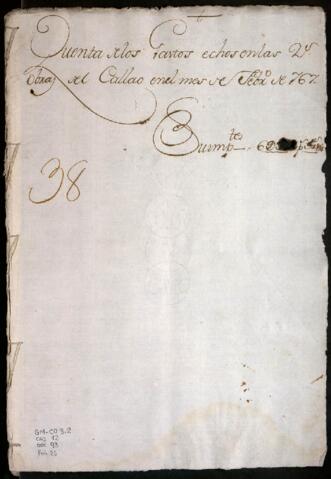 Quenta de los Gastos echos en las Rs
Obras del Callao en el mes de Febro de 762
Suimpte
38
GM-CO 3.2
CAJ 12
DOC 93
Fol. 25